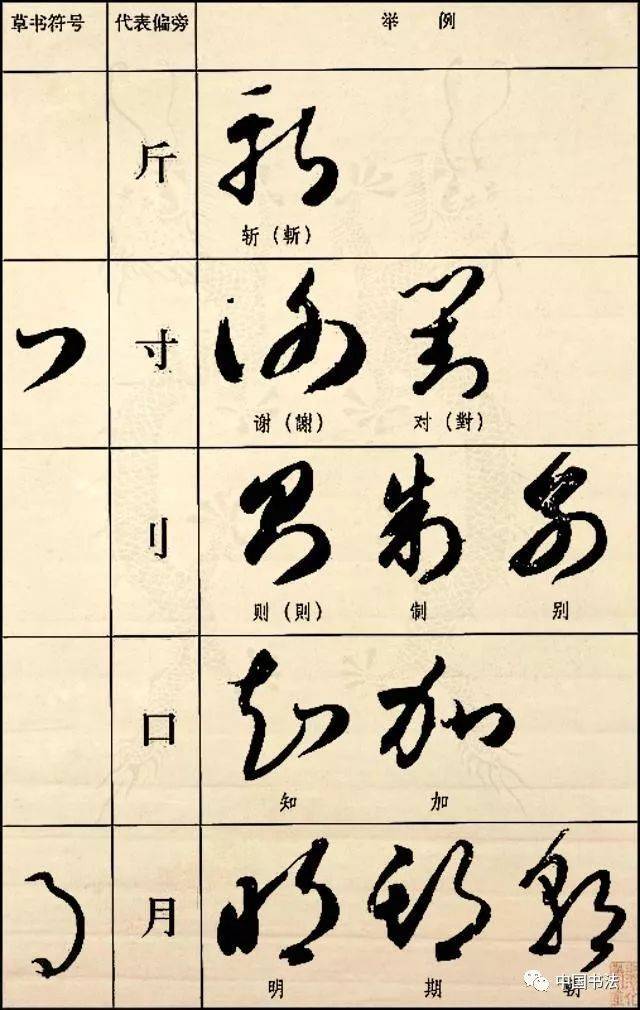 草书符号 代表偏旁 举例
斤
斩（斬）
寸
谢（謝） 对（對）
刂
则（則） 制 别
口
知 加
月
明 期 朝
中国书法